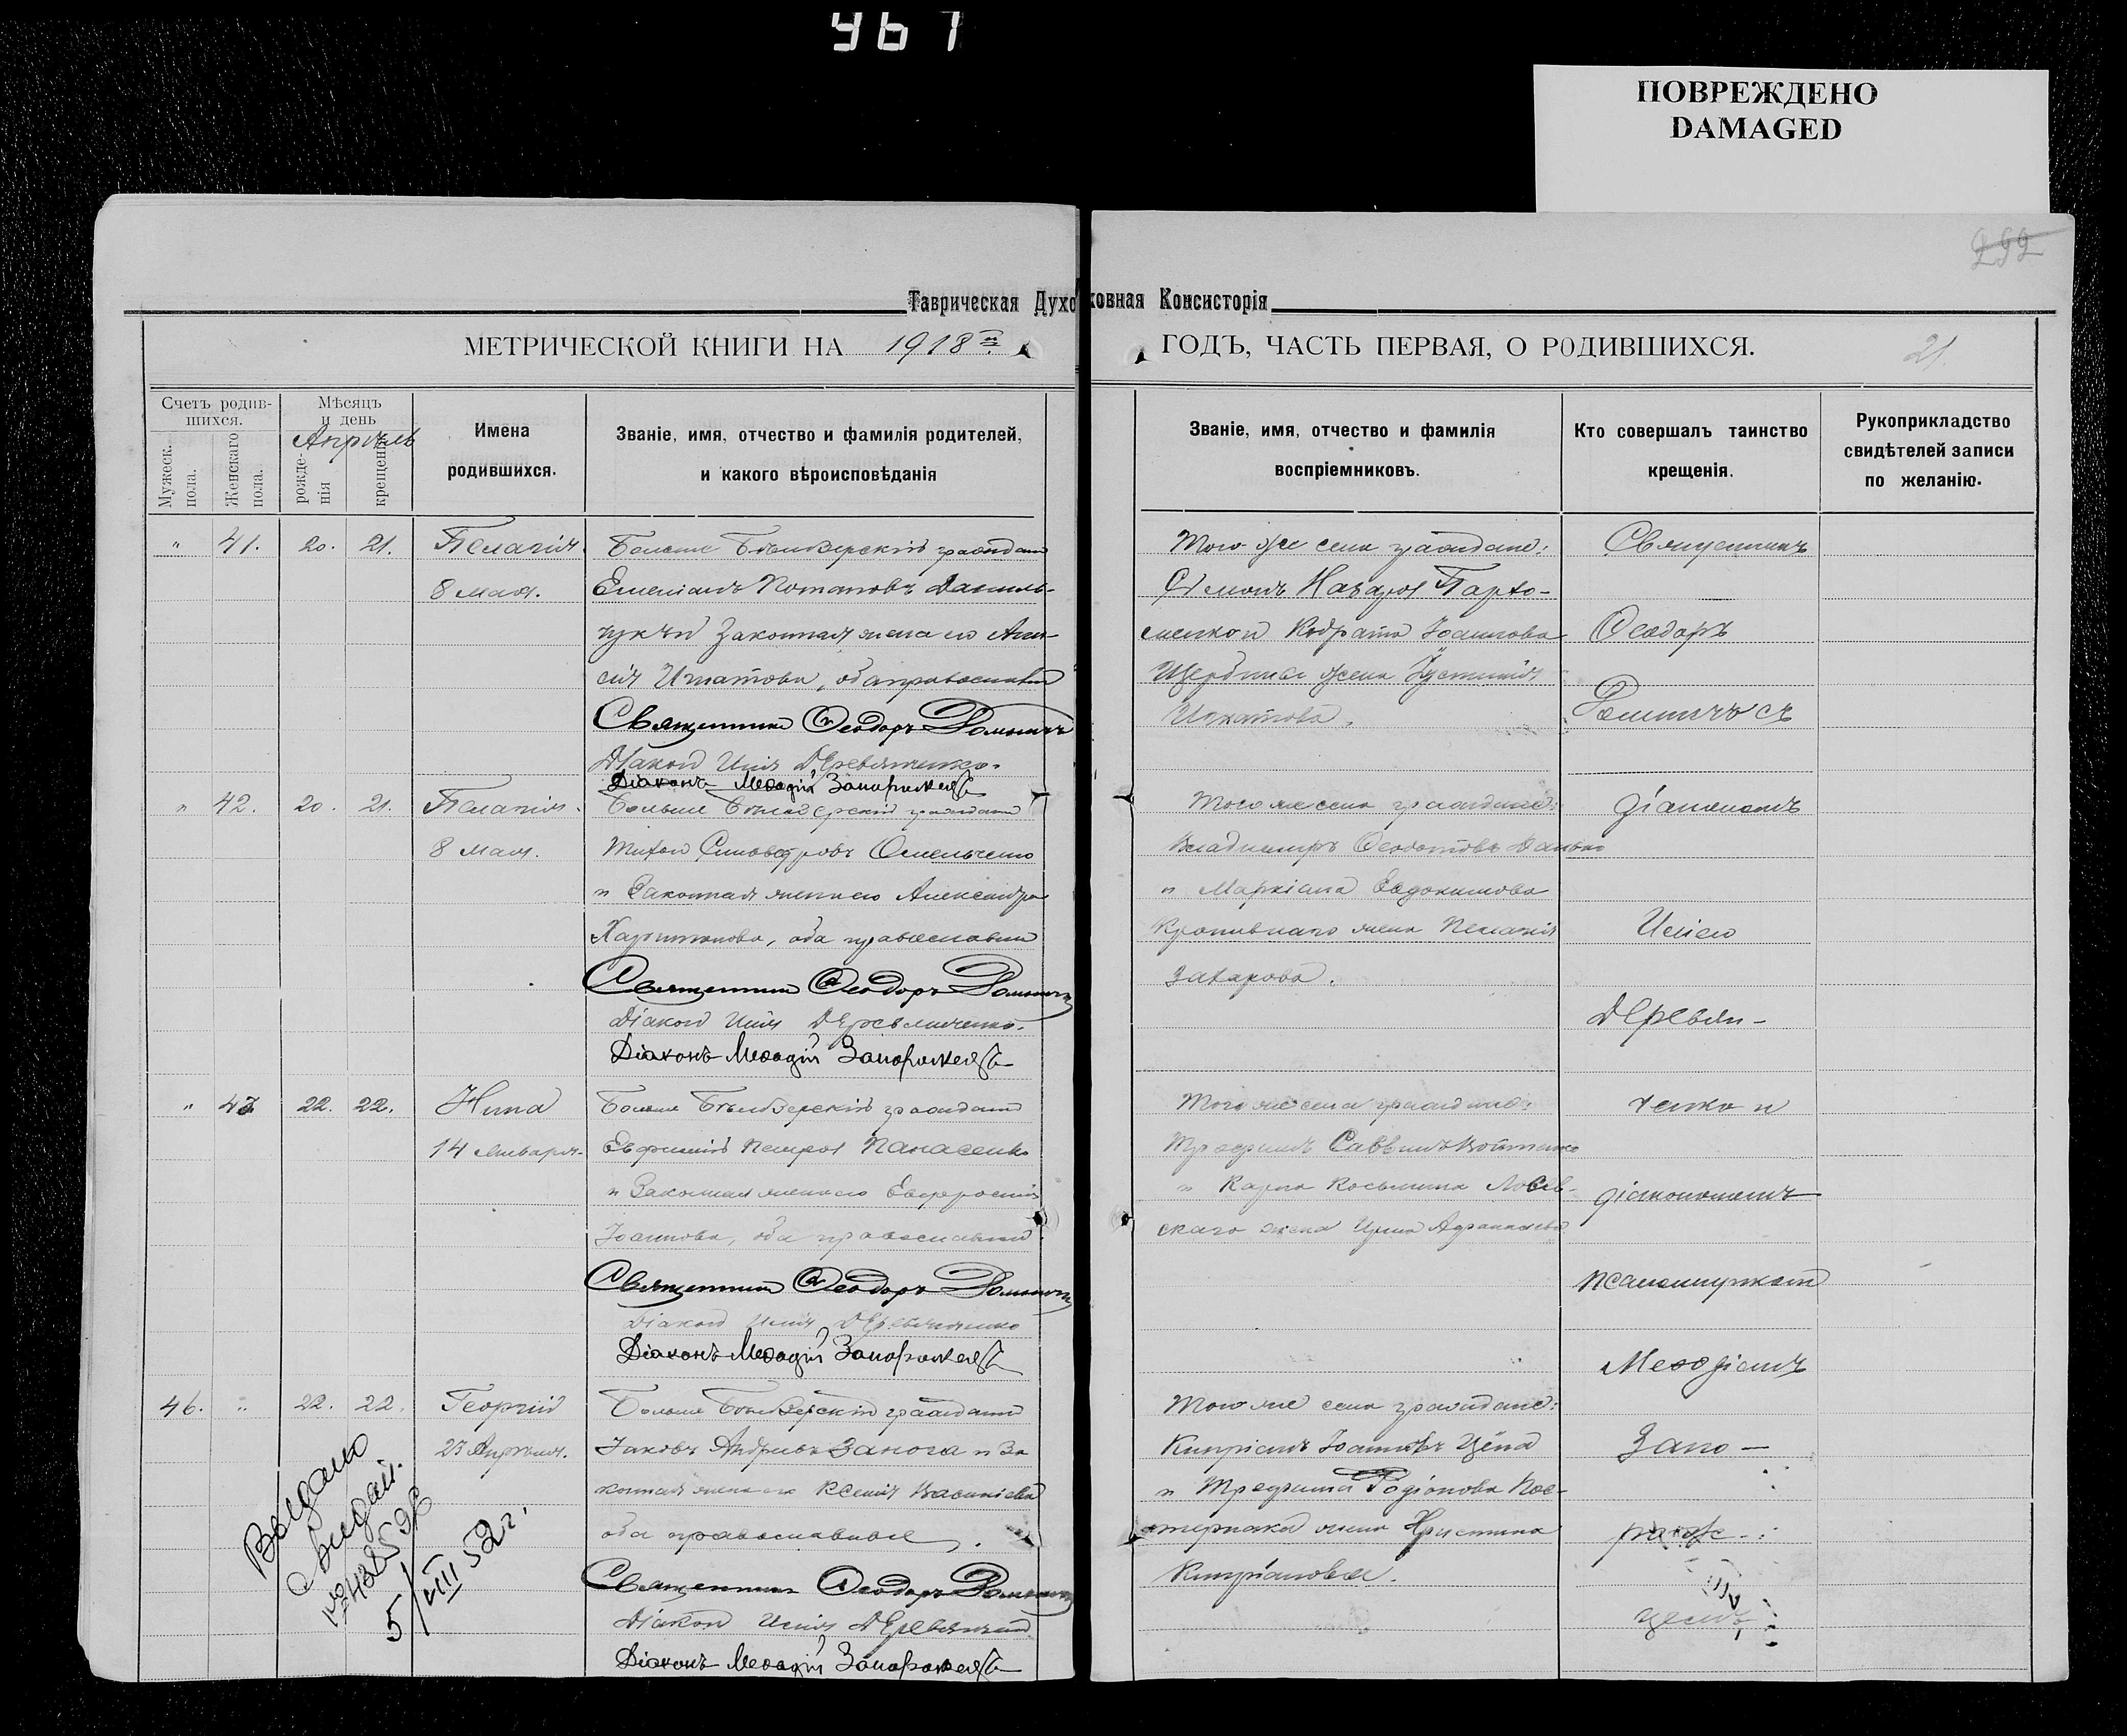 961
ПОВРЕЖДЕНО
DAMAGED
292
Таврическая Духовная Консисторія
МЕТРИЧЕСКОЙ КНИГИ НА 1918 ГОДЪ, ЧАСТЬ ПЕРВАЯ, О РОДИВШИХСЯ.
21.
Счетъ родив-
шихся.
Мужеск.
пола.
Женскаго
пола.
Мѣсяцъ
и день
Апрѣль
рожде-
нія
крещенія
Имена
родившихся.
Званіе, имя, отчество и фамилія родителей,
и какого вѣроисповѣданія
Званіе, имя, отчество и фамилія
воспріемниковъ.
Кто совершалъ таинство
крещенія.
Рукоприкладство
свидѣтелей записи
по желанію.
" 41. 20. 21. Пелагія.
8 мая.
Больше Бѣлозерскій гражданинъ
Емеліанъ Потаповъ Даниль-
чукъ и законная жена его
Игнатова, оба православные
Священникъ Ѳеодоръ
Діаконъ Илія Деревянченко.
Діаконъ Меѳодій Запорожецъ
Того же села граждане:
Симонъ Назаров Пархо-
менко и Кодрата Іоаннова
Щербины жена Іустинія
Игнатова.
Священникъ
Ѳеодоръ
съ
" 42. 20. 21. Пелагія.
8 мая.
Больше Бѣлозерскій гражданинъ
Тихон Омельченко
и законная жена его Александра
Харитонова, оба православные
Священникъ Ѳеодоръ
Діаконъ Илія Деревянченко.
Діаконъ Меѳодій Запорожецъ
Того же села граждане:
Владиміръ Ѳеодотовъ Данько
и Маркіана Евдокимова
Кропивнаго жена Пелагія
Захарова.
діакономъ
Иліею
Деревян-
" 43 22. 22. Нина
14 января.
Больше Бѣлозерскій гражданинъ
Евфимій Петров Панасенко
и законная жена его Евфросинія
Іоаннова, оба православные.
Священникъ Ѳеодоръ
Діаконъ Илія Деревянченко
Діаконъ Меѳодій Запорожецъ
Того же села граждане:
Трофимъ Саввинъ Войтенко
и Карпа Косьмина
скаго жена Ирина
ченко и
діакономъ
псаломщикомъ
Меѳодіемъ
46. " 22. 22. Георгій
23 Апрѣля.
Больше Бѣлозерскій гражданинъ
Іаковъ Андреевъ Занога и за
конная жена его Ксенія Василіева
оба православные.
Священникъ Ѳеодоръ
Діаконъ Илія Деревянченко
Діаконъ Меѳодій Запорожецъ
Того же села граждане:
Кипріанъ Іоанновъ Цѣпа
и Трофима Родіонова Пос-
жена Христина
Кипріановна.
Запо-
рож-
цемъ
Выдано
свидет.
5/VIII 52 г.